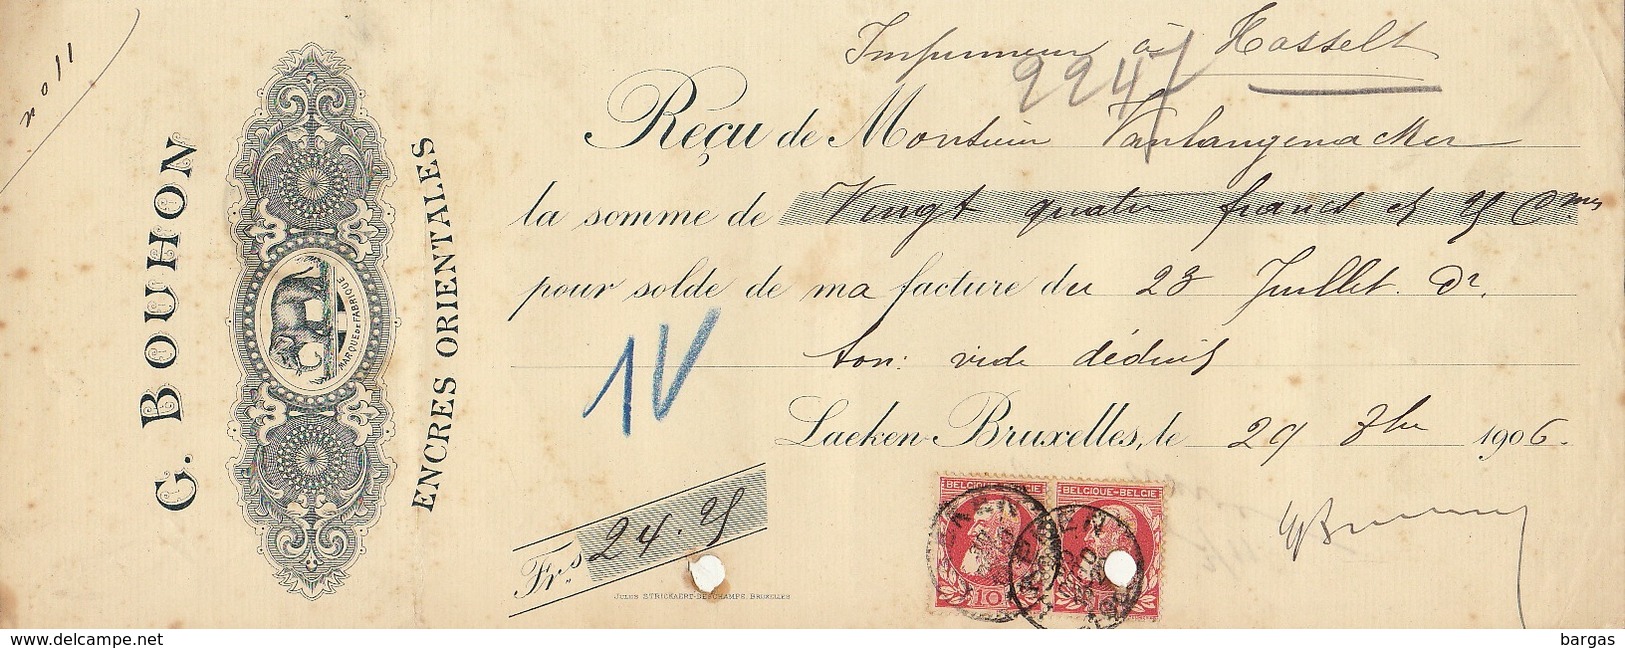 no 11
G. BOUHON
MARQUE DE FABRIQUE
ENCRES ORIENTALES
Imprimeur à Hasselt
224
Reçu de Monsieur Vanlangenacker
la somme de Vingt quatre francs et 25 Cmes
pour solde de ma facture du 23 Juillet. Dr.
ton: vide déduit
1V
Laeken-Bruxelles, le 29 1906.
Frs 24.25
JULES STRICKAERT-DESCHAMPS, BRUXELLES
BELGIQUE-BELGIE BELGIQUE-BELGIE
10
LAEKEN
LAEKEN
www.delcampe.net
bargas